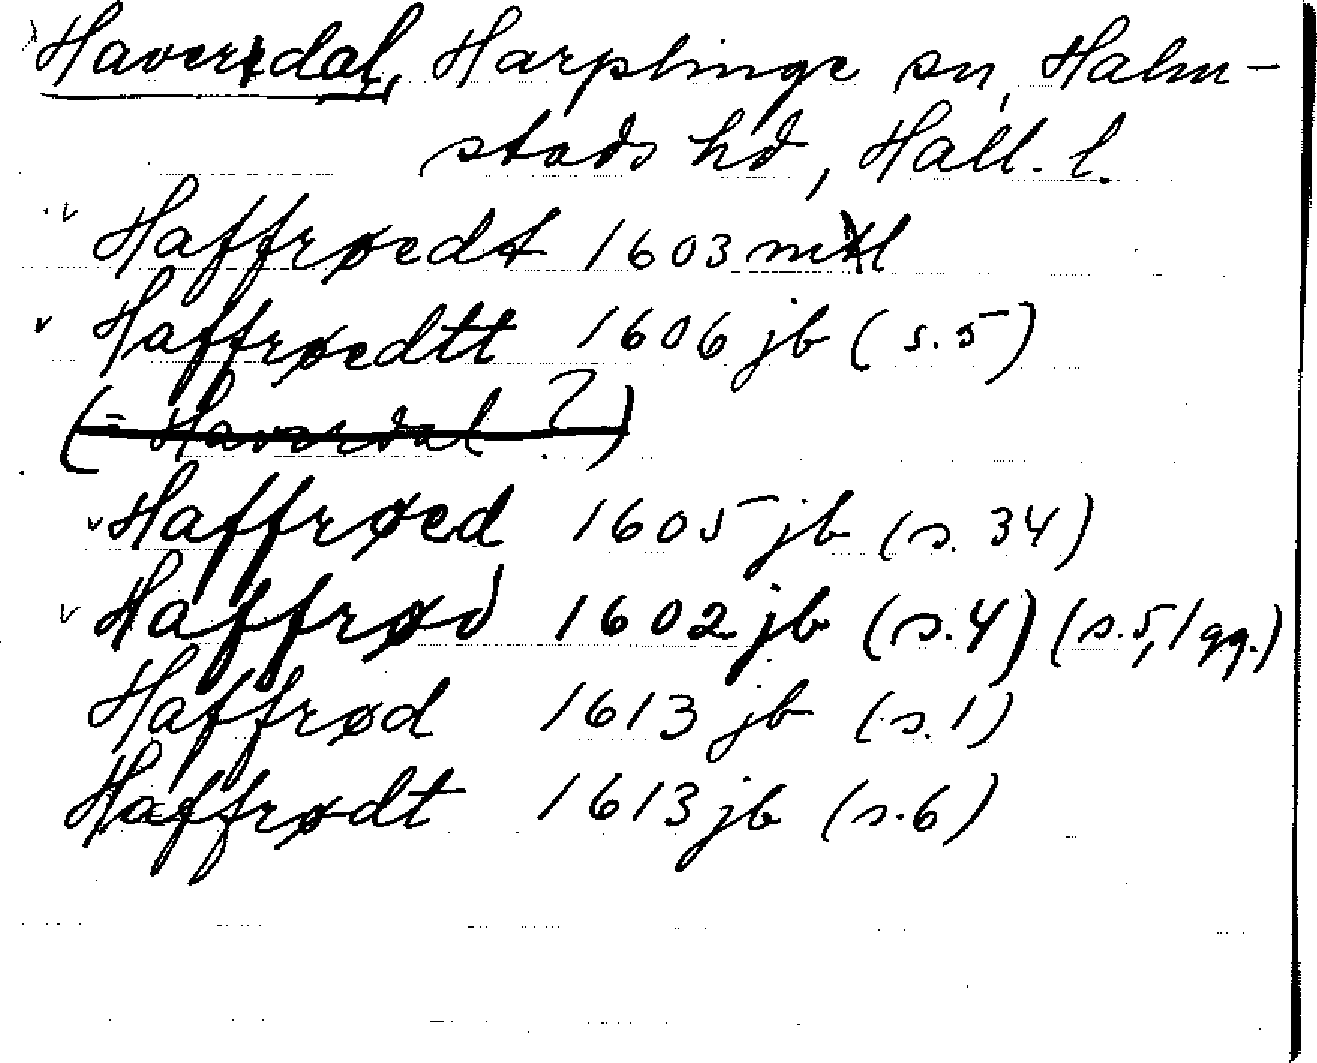 Haverdal, Harplinge sn, Halm-
stads hd, Hall. l.
v Haffrøedt 1603 mtl
v Haffrøedtt 1606 jb (s.5)
(= Haverdal ?)
v Haffrøed 1605 jb (s. 34)
v Haffrød 1602 jb (s.4) (s.5, 1 gg.)
Haffrød 1613 jb (s.1)
Haffrødt 1613 jb (s.6)